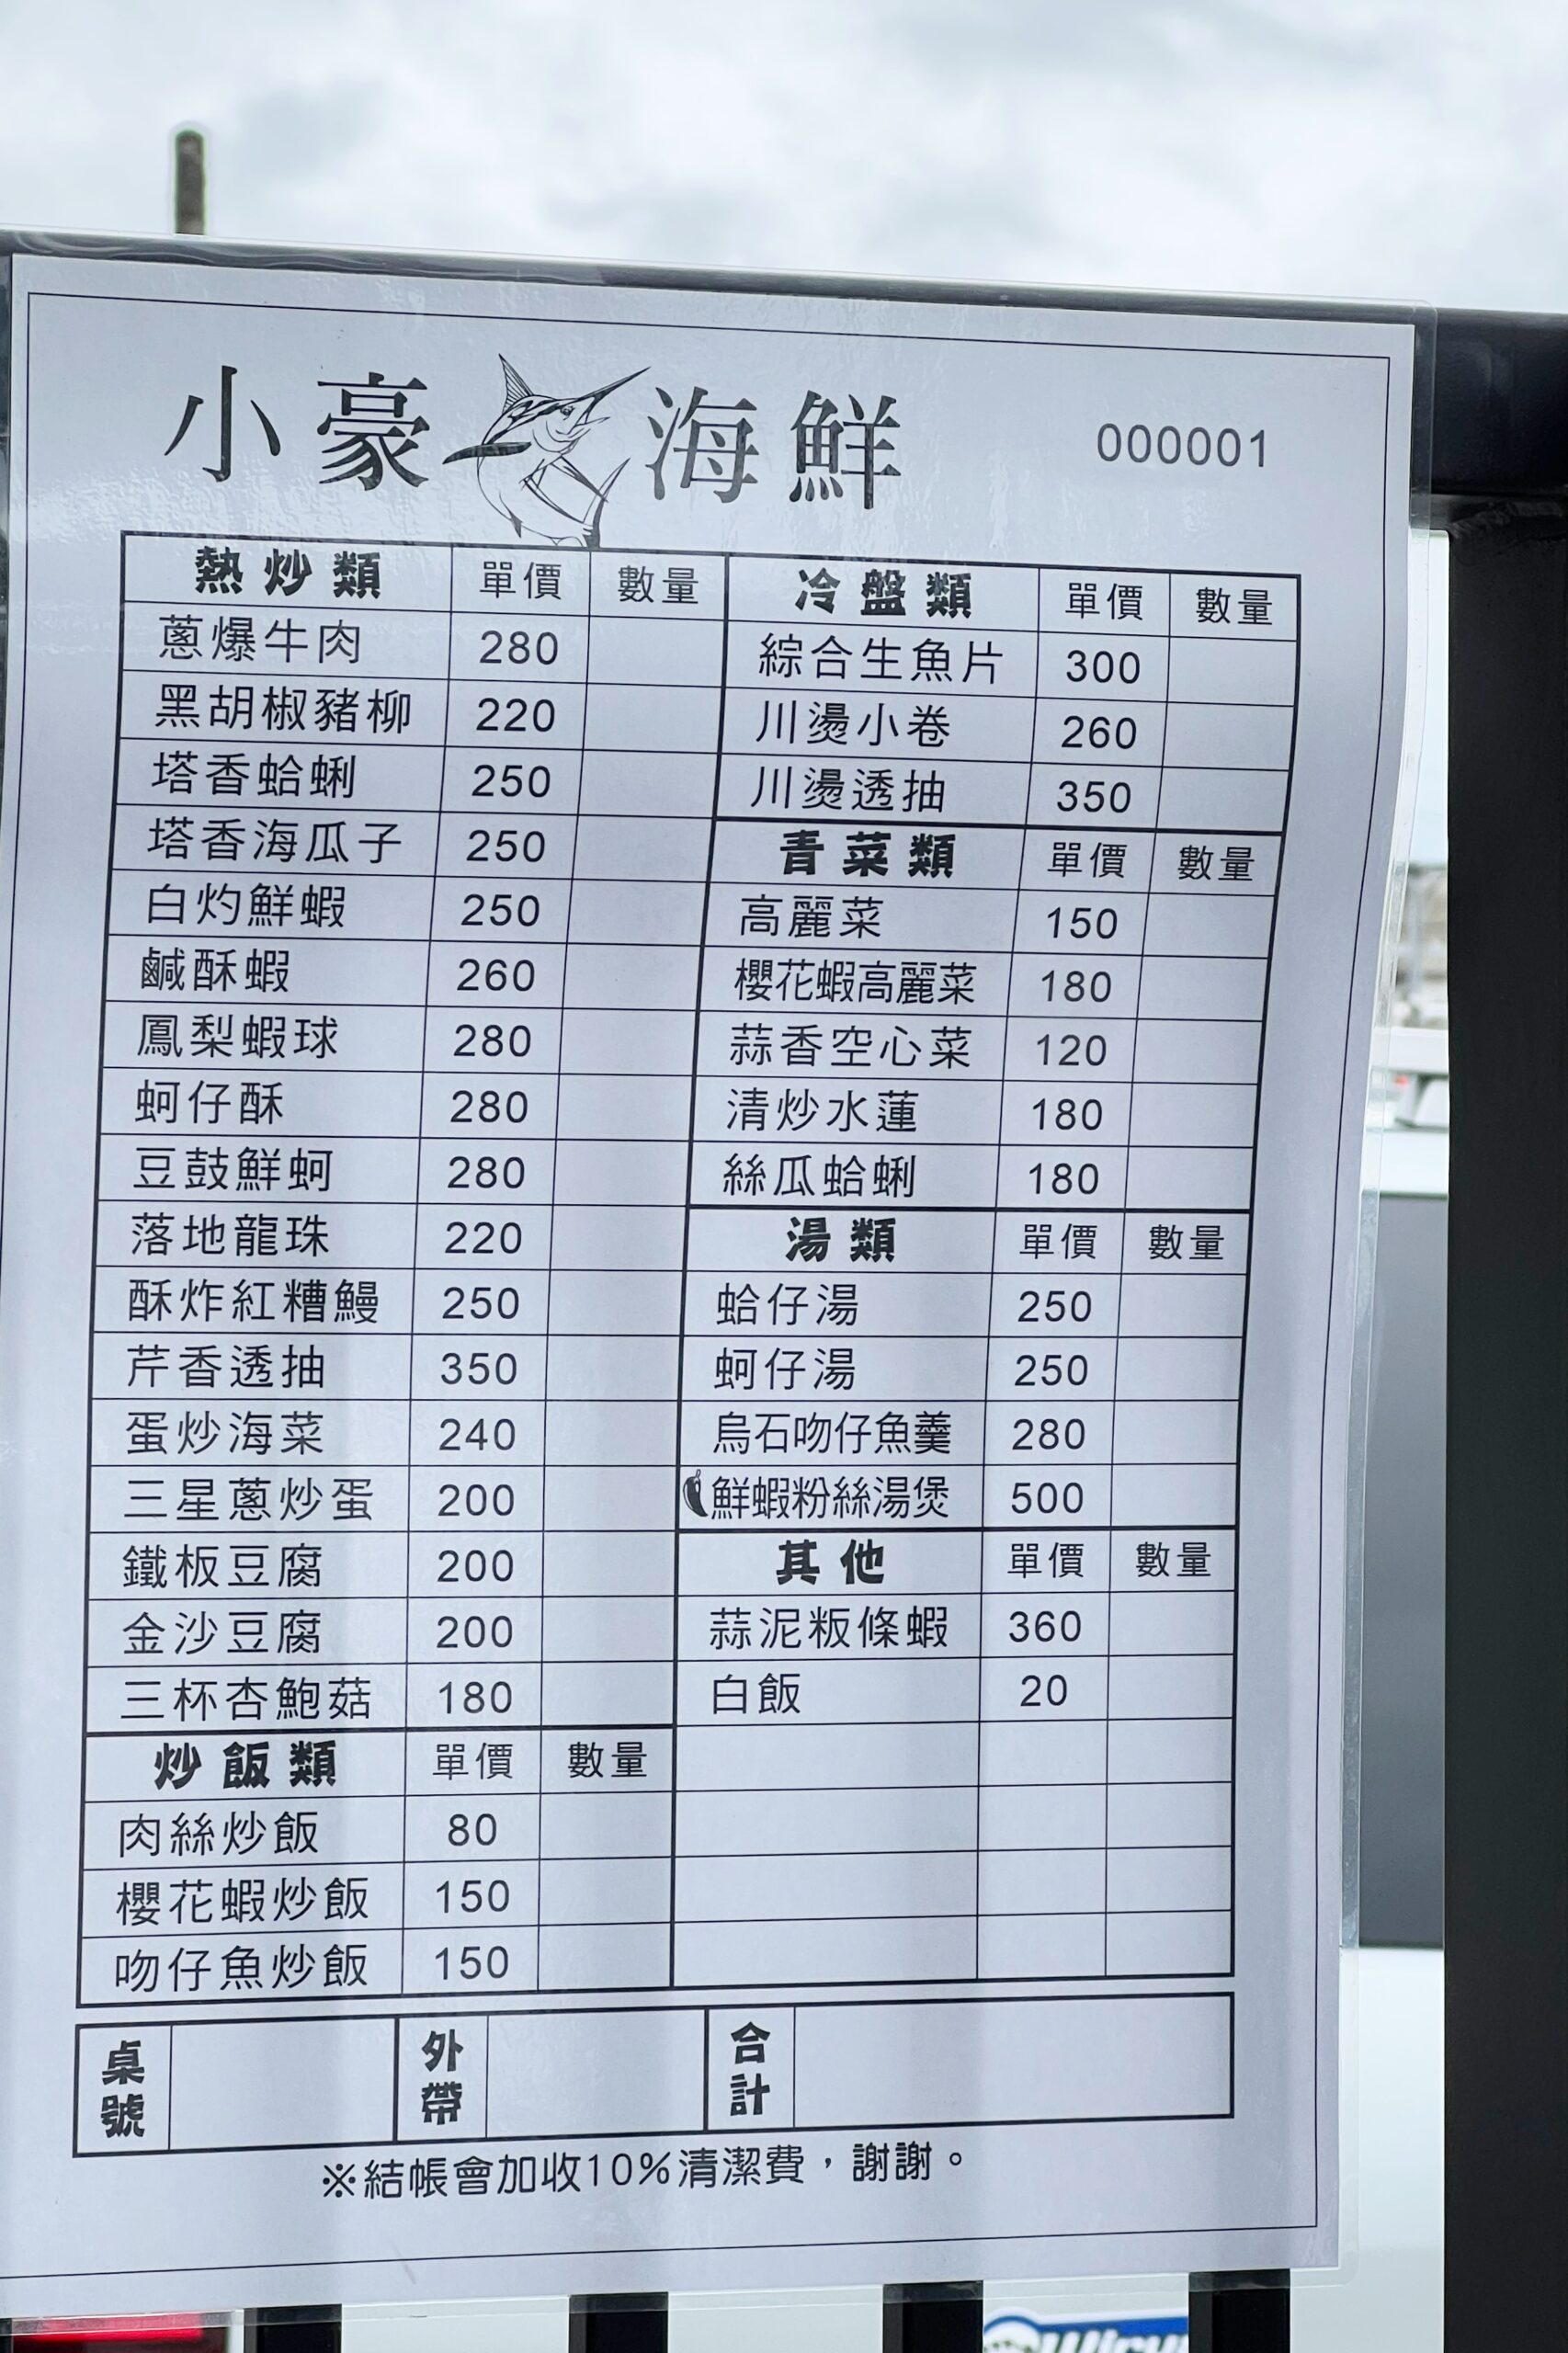 小豪海鮮
000001
熱炒類 單價 數量
蔥爆牛肉 280
黑胡椒豬柳 220
塔香蛤蜊 250
塔香海瓜子 250
白灼鮮蝦 250
鹹酥蝦 260
鳳梨蝦球 280
蚵仔酥 280
豆鼓鮮蚵 280
落地龍珠 220
酥炸紅糟鰻 250
芹香透抽 350
蛋炒海菜 240
三星蔥炒蛋 200
鐵板豆腐 200
金沙豆腐 200
三杯杏鮑菇 180
炒飯類 單價 數量
肉絲炒飯 80
櫻花蝦炒飯 150
吻仔魚炒飯 150
冷盤類 單價 數量
綜合生魚片 300
川燙小卷 260
川燙透抽 350
青菜類 單價 數量
高麗菜 150
櫻花蝦高麗菜 180
蒜香空心菜 120
清炒水蓮 180
絲瓜蛤蜊 180
湯類 單價 數量
蛤仔湯 250
蚵仔湯 250
烏石吻仔魚羹 280
鮮蝦粉絲湯煲 500
其他 單價 數量
蒜泥粄條蝦 360
白飯 20
桌號 外帶 合計
※結帳會加收10%清潔費，謝謝。